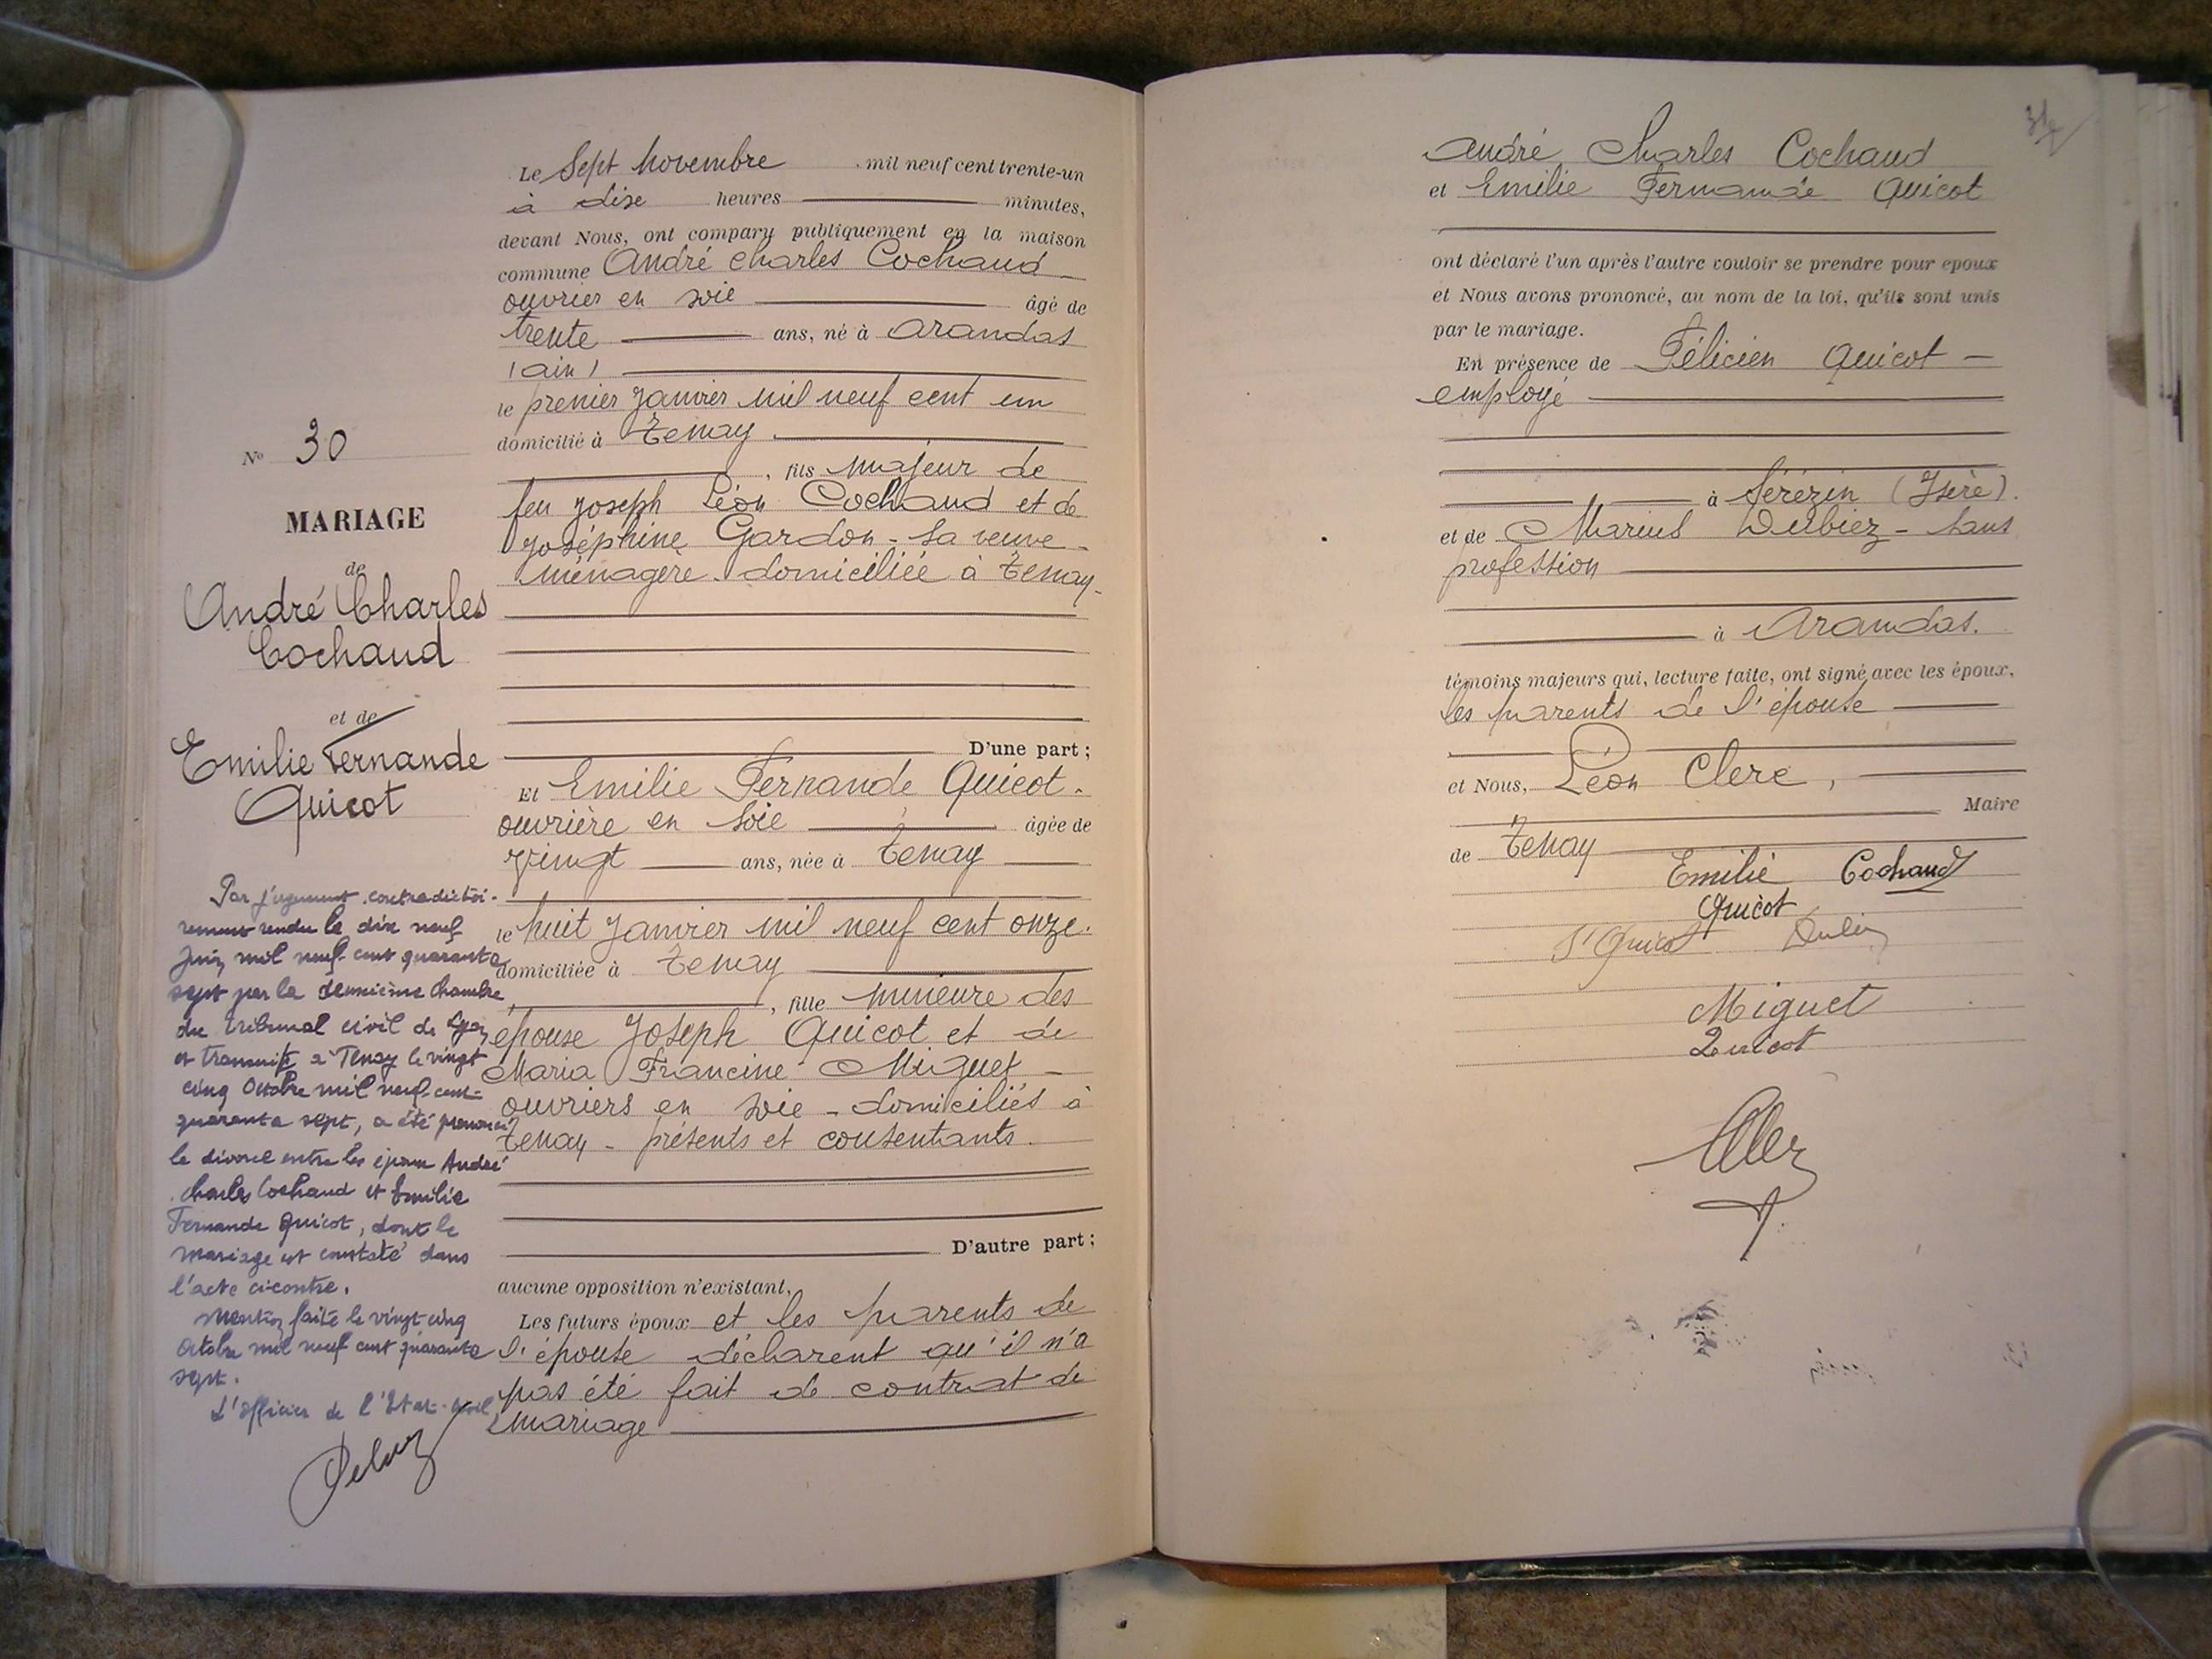 No 30
MARIAGE
de
André Charles
Cochaud
et de
Emilie Fernande
Quicot
Par jugement contradictoi-
rement rendu le dix neuf
Juin mil neuf cent quarante
sept par la deuxième chambre
du tribunal civil de Lyon
et transmis à Tenay le vingt
cinq Octobre mil neuf cent
quarante sept, a été prononcé
le divorce entre les époux André
Charles Cochaud et Emilie
Fernande Quicot, dont le
mariage est constaté dans
l'acte ci-contre.
Mention faite le vingt cinq
Octobre mil neuf cent quarante
sept.
L'officier de l'Etat-civil,
Le Sept Novembre mil neuf cent trente-un
à dixe heures minutes,
devant Nous, ont comparu publiquement en la maison
commune André Charles Cochaud
ouvrier en soie âgé de
trente ans, né à Arandas
(Ain)
le premier Janvier mil neuf cent un
domicilié à Tenay
, fils majeur de
feu Joseph Léon Cochaud et de
Joséphine Gardon - sa veuve -
ménagère - domiciliée à Tenay -
D'une part ;
Et Emilie Fernande Quicot -
ouvrière en soie âgée de
vingt ans, née à Tenay
le huit Janvier mil neuf cent onze.
domiciliée à Tenay
, fille mineure des
épouse Joseph Quicot et de
Maria Francine Miguet -
ouvriers en soie - domiciliés à
Tenay - présents et consentants.
D'autre part ;
aucune opposition n'existant,
Les futurs époux et les parents de
l'épouse déclarent qu'il n'a
pas été fait de contrat de
mariage
André Charles Cochaud
et Emilie Fernande Quicot
ont déclaré l'un après l'autre vouloir se prendre pour epoux
et Nous avons prononcé, au nom de la loi, qu'ils sont unis
par le mariage.
En présence de Félicien Quicot -
employé
à Sérézin (Isère).
et de Marius Dubiez - sans
profession
à Arandas.
témoins majeurs qui, lecture faite, ont signé avec les époux,
les parents de l'épouse
et Nous, Léon Clerc,
Maire
de Tenay
Emilie Cochaud
Quicot
Quicot
Miguet
Quicot